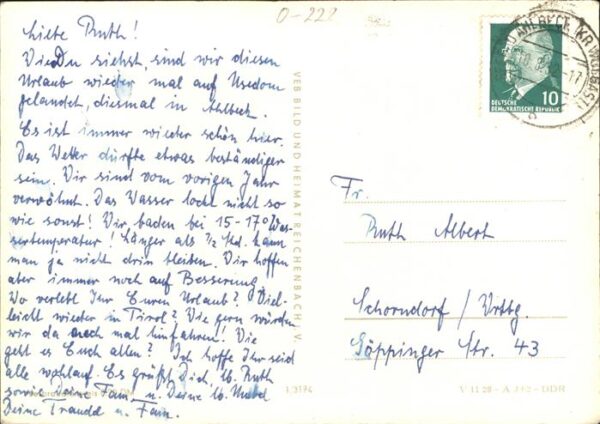 O-222
Liebe Ruth!
Wie Du siehst, sind wir diesen
Urlaub wieder mal auf Usedom
gelandet, diesmal in Ahlbeck.
Es ist immer wieder schön hier.
Das Wetter dürfte etwas beständiger
sein. Wir sind vom vorigen Jahr
verwöhnt. Das Wasser lockt nicht so
wie sonst! Wir baden bei 15-17° Was-
sertemperatur! Länger als 1/2 Std. kann
man ja nicht drin bleiben. Wir hoffen
aber immer noch auf Besserung.
Wo verlebt Ihr Euren Urlaub? Viel-
leicht wieder in Tirol? Wie gern würden
wir da auch mal hinfahren! Wie
geht es Euch allen? Ich hoffe Ihr seid
alle wohlauf. Es grüßt Dich, lb. Ruth
sowie Deine Fam. u. Deine lb. Mutti
Deine Traudel u. Fam.
VEB BILD UND HEIMAT REICHENBACH i. V.
AHLBECK (KR WOLGAST)
10
DEUTSCHE
DEMOKRATISCHE REPUBLIK
Fr.
Ruth Albert
Schorndorf / Württg.
Göppinger Str. 43
V 11 28 - A DDR